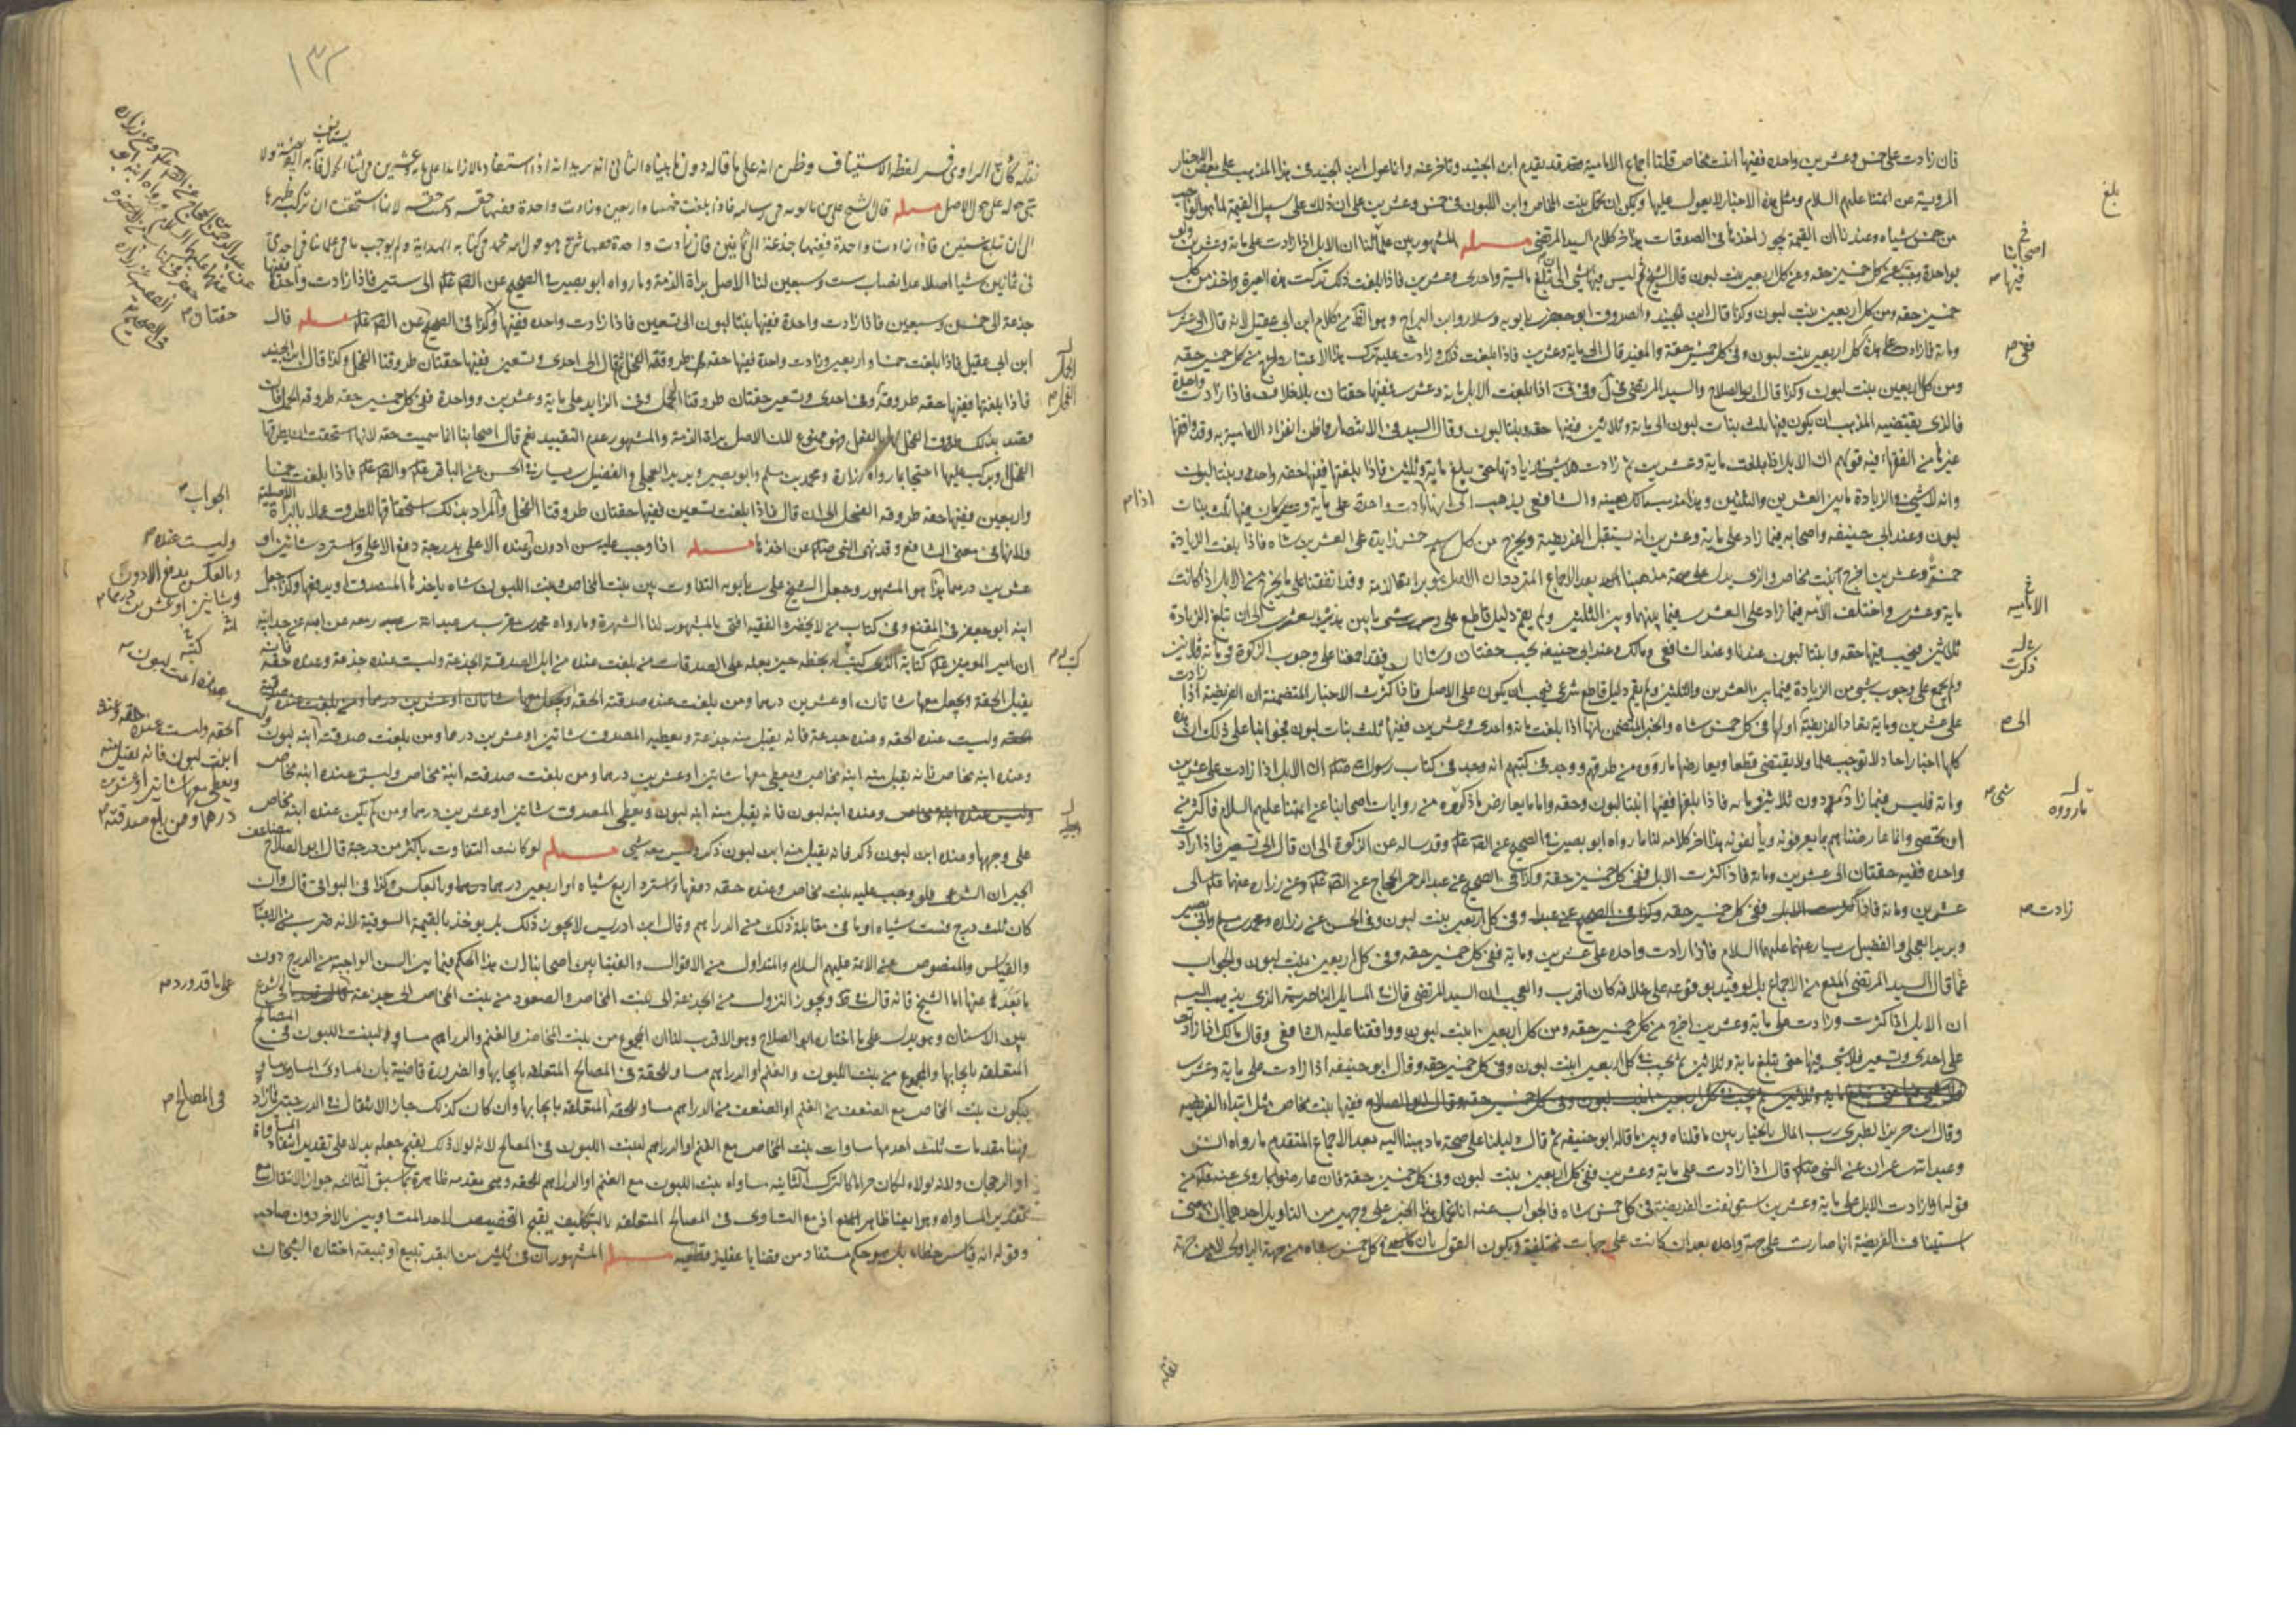 فان زادت على خمس وعشرين واحدة ففيها ابنة مخاض قلنا اجماع الامامية قد تقدم ابن الجنيد وتاخر عنه وانما عول ابن الجنيد في هذا المذهب على بعض الاخبار
المروية عن ائمتنا عليهم السلام ومثل هذه الاخبار لا يعول عليها ويمكن ان يحمل بنت المخاض وابن اللبون في خمس وعشرين على ان ذلك على سبيل القيمة لما هو الواجب
من خمس شياه وعندنا ان القيمة يجوز اخذها في الصدقات هذا اخر كلام السيد المرتضى مسئله المشهور بين علمائنا ان الابل اذا زادت على مائة وعشرين
بواحدة وجب في كل خمسين حقه وفي كل اربعين بنت لبون قال الشيخ ثم ليس فيها شي الى ان تبلغ مائة واحدى وعشرين فاذا بلغت ذلك تركت هذه العبرة واخذ من كل
خمسين حقه ومن كل اربعين بنت لبون وكذا قال ابن الجنيد والصدوق ابو جعفر بن بابويه وسلار وابن البراج وهو الظ من كلام ابن ابي عقيل لانه قال الى عشرين
ومائة فاذا زادت كل اربعين بنت لبون وفي كل خمسين حقة والمفيد قال الى مائة وعشرين فاذا بلغت ذلك وزادت عليه ترك هذا الاعتبار واخرج من كل خمسين حقه
ومن كل اربعين بنت لبون وكذا قال ابو الصلاح والسيد المرتضى اذا بلغت الابل مائة وعشرين ففيها حقتان بلا خلاف فاذا زادت واحدة
فالذي يقتضيه المذهب ان يكون فيها ثلث بنات لبون الى مائة وثلاثين ففيها حقه وبنتا لبون وقال السيد في الانتصار ومما ظن انفراد الامامية به وقد وافقها
غيرها من الفقهاء فيه قولهم ان الابل اذا بلغت مائة وعشرين ثم زادت فلا شي في زيادتها حتى يبلغ مائة وثلثين فاذا بلغتها ففيها حقه واحدة وبنتا لبون
وانه لا شي في الزيادة ما بين العشرين والثلثين وهذا مذهب مالك بعينه والشافعي يذهب الى انها زادت واحدة على مائة وعشرين كان فيها ثلث بنات
لبون وعند ابي حنيفه واصحابه فيما زاد على مائة وعشرين انه يستقبل الفريضة ويخرج من كل خمس زايدة على العشرين شاه فاذا بلغت الزيادة
خمسة وعشرين اخرج ابنة مخاض والذي يدل على صحة مذهبنا بعد الاجماع المتردد ان الاصل هو براءة الذمة وقد اتفقنا على ما يخرج من الابل اذا كانت
مائة وعشرين واختلف الامة فيما زاد على العشرين فيما بينهما وبين الثلثين ولم يقم دليل قاطع على وجوب شي ما بين عشرين الى ان تبلغ الزيادة
ثلاثين فيجب فيها حقه وابنتا لبون عندنا وعند الشافعي ومالك وعند ابي حنيفه يجب حقتان وشاتان فقد اجمعنا على وجوب الزكوة في مائة وثلاثين
ولم يجمع على وجوب شي من الزيادة فيما بين العشرين والثلثين ولم يقم دليل قاطع شرعي فيجب ان يكون على الاصل فاذا ذكرت الاخبار المتضمنة ان الفريضة اذا زادت
على عشرين ومائة يعاد الفريضة اولها في كل خمس شاه والخبر المتضمن بانها اذا بلغت مائة واحدى وعشرين ففيها ثلث بنات لبون فجوابنا على ذلك ان هذه
كلها اخبار احاد لا توجب علما ولا يقتضي قطعا ويعارضها ما روي من طرقهم ووجد في كتبهم انه وجد في كتاب رسول الله ان الابل اذا زادت على عشرين
ومائة فليس فيما زاد شي دون ثلاثين ومائة فاذا بلغها ففيها ابنتا لبون وحقه واما ما يعارض ما ذكروه من روايات اصحابنا عن ائمتنا عليهم السلام فاكثر من
ان يحصى وانما عارضناهم بما يعرفونه ويألفونه هذا اخر كلامه لنا ما رواه ابو بصير في الصحيح عن الصادق وقد ساله عن الزكوة الى ان قال الى تسعين فاذا زادت
واحده ففيه حقتان الى عشرين ومائة فاذا كثرت الابل ففي كل خمسين حقه وكذا في الصحيح عن عبد الرحمن الحجاج وعن زراره عنهما الى
عشرين ومائة فاذا كثرت الابل ففي كل خمسين حقه وفي كل اربعين بنت لبون وفي الحسن عن زراره ومحمد بن مسلم وابي بصير
وبريد العجلي والفضيل بن يسار عنهما عليهما السلام فاذا زادت واحده على عشرين ومائة ففي كل خمسين حقه وفي كل اربعين بنت لبون والجواب
عما قال السيد المرتضى المنع من الاجماع بل لو قيل بوقوعه على خلافه كان اقرب والعجب ان السيد المرتضى قال في المسايل الناصرية الذي يذهب اليه
ان الابل اذا كثرت وزادت على مائة وعشرين اخرج من كل خمسين حقه ومن كل اربعين ابنت لبون ووافقنا عليه الشافعي وقال مالك اذا زادت
على احدى وتسعين فلا شي فيها حتى تبلغ مائة وثلاثين ثم يجب في كل اربعين ابنت لبون وفي كل خمسين حقه وقال ابو حنيفه اذا زادت على مائة وعشرين
ففيها بنت مخاض مثل ابتداء الفريضه
وقال ابن جرير الطبري رب المال بالخيار بين ما قلناه وبين ما قاله ابو حنيفه ثم قال دليلنا على صحة ما ذهبنا اليه بعد الاجماع المتقدم ما رواه انس
وعبد الله بن عمر ان عن النبي قال اذا زادت على مائة وعشرين ففي كل اربعين بنت لبون وفي كل خمسين حقة فان عارضوا بما روي عنه من
قوله اذا زادت الابل على مائة وعشرين استونفت الفريضة في كل خمس شاه فالجواب عنه انا نحمل هذا الخبر على وجهين من التاويل احدهما ان معنى
استيناف الفريضة انها صارت على جهة واحده بعد ان كانت على جهات مختلفة ويكون القول بان في كل خمس شاه من جهة الراوي لا من جهة
بلغ
اصحابنا
فيها
ففي
اذا
الامامية
ذكرت
الى
شي
ما رووه
زادت
نقله
١٣٢
يستانف
نقله كان الراوي فسر لفظة الاستيناف وظن انه على ما قاله دون ما بيناه الثاني انه يريد انه اذا استفاد مالا زايدا على مايه وعشرين في اثناء الحول فانه الفريضة ولا
على حول الاصل مسئله قال الشيخ علي بن بابويه في رسالته فاذا بلغت خمسا واربعين وزادت واحدة ففيها حقه وسميت حقه لانها استحقت ان تركب ظهرها
الى ان تبلغ ستين فاذا زادت واحدة ففيها جذعة الى ثمانين فان زادت واحدة ففيها ثني وهو قول ابنه محمد في كتابه الهداية ولم يوجب باقي علمائنا في احدى
وثمانين شيا اصلا عدا نصاب ست وسبعين لنا الاصل براة الذمة وما رواه ابو بصير في الصحيح عن الصادق الى ستين فاذا زادت واحدة ففيها
جذعة الى خمس وسبعين فاذا زادت واحدة ففيها بنتا لبون الى تسعين فاذا زادت واحده ففيها وكذا في الصحيح عن مسئله قال
ابن ابي عقيل فاذا بلغت خمسا واربعين وزادت واحدة ففيها حقه طروقة الفحل ثم قال الى احدى وتسعين ففيها حقتان طروقتا الفحل وكذا قال ابن الجنيد
فاذا بلغتها ففيها حقه طروقة وفي احدى وتسعين حقتان طروقتا الفحل وفي الزايد على مايه وعشرين وواحدة ففي كل خمسين حقه طروقه الفحل فان
قصد بذلك طروق الفحل بالفعل فهو ممنوع لان الاصل براة الذمة والمشهور عدم التقييد نعم قال اصحابنا انما سميت حقه لانها استحقت ان يطرقها
الفحل او يركب عليها احتجا بما رواه زرارة ومحمد بن مسلم وابو بصير وبريد العجلي والفضيل بن يسار في الحسن عن الباقر والصادق فاذا بلغت خمسا
واربعين ففيها حقه طروقه الفحل الى ان قال فاذا بلغت تسعين ففيها حقتان طروقتا الفحل والمراد بذلك استحقاقها للطروق عملا بالبراة الاصلية
مسئله اذا وجب عليه سن ادون وعنده الاعلى بدرجة دفع الاعلى واسترد شاتين او
عشرين درهما هذا هو المشهور وجعل الشيخ علي بن بابويه التفاوت بين بنت المخاض وبنت اللبون شاه ياخذها المصدق او يدفعها وكذا جعل
ابنه ابو جعفر في المقنع وفي كتاب من لا يحضره الفقيه افتى بالمشهور لنا الشهرة وما رواه محمد بن مقرن بن عبد الله بن زمعه عن ابيه عن جد ابيه
ان امير المومنين كتابة الذي كتب له بخطه حين بعثه على الصدقات من بلغت عنده من ابل الصدقة الجذعة وليست عنده جذعة وعنده حقه فانه
يقبل الحقة ويجعل معها شاتان او عشرين درهما ومن بلغت عنده صدقته الحقه
وليست عنده الحقه وعنده جذعة فانه يقبل منه جذعة ويعطيه المصدق شاتين او عشرين درهما ومن بلغت صدقته ابنة لبون
وعنده ابنه مخاض فانه يقبل منه ابنه مخاض ويعطي معها شاتين او عشرين درهما ومن بلغت صدقته ابنة مخاض وليست عنده ابنه مخاض
وعنده ابنه لبون فانه يقبل منه ابنه لبون ويعطي المصدق شاتين او عشرين درهما ومن لم يكن عنده ابنه مخاض
على وجهها وعنده ابن لبون ذكر فانه يقبل منه ابن لبون ذكر وليس معه شي مسئله لو كانت التفاوت باكثر من درجة قال ابو الصلاح
الجبران الشرعي فلو وجب عليه بنت مخاض وعنده حقه دفعها واسترد اربع شياه او اربعين درهما وبالعكس وكذا في البواقي قال وان
كان ثلث درج فست شياه او ما في مقابلة ذلك من الدراهم وقال ابن ادريس لا يجوز ذلك بل يوخذ بالقيمة السوقية لانه ضرب من الاعتبار
والقياس والمنصوص عن الائمة عليهم السلام والمتداول من الاقوال والفتيا بين اصحابنا ان هذا الحكم فيما بين السن الواجبة من الدرج دون
ما بعد عنها اما الشيخ فانه قال في ط ويجوز النزول من الجذعة الى بنت المخاض والصعود من بنت المخاض الى جذعة
بين الاسنان وهو يدل على ما اختاره ابو الصلاح وهو الاقرب لنا ان المجموع من بنت المخاض والغنم والدراهم مساو لبنت اللبون في المصالح
المتعلقه بايجابها والمجموع من بنت اللبون والغنم او الدراهم مساو للحقة في المصالح المتعلقه بايجابها والضرورة قاضية بان المساوي للمساوي مساو
فيكون بنت المخاض مع الضعف من الغنم او الضعف من الدراهم مساو للحقه المتعلقه بايجابها وان كان كذلك جاز الانتقال في الدرجتين فما زاد
وهنا مقدمات ثلث احدها مساوات بنت المخاض مع الغنم او الدراهم لبنت اللبون في المصالح لانه لولا ذلك لقبح جعله بدلا على تقدير انتفاء المساواة
او الرجحان ولانه لولاه لكان حراما كالترك الثانيه مساواه بنت اللبون مع الغنم او الدراهم للحقه وهي مقدمه ظاهرة بما سبق الثالثه جواز الانتقال مع
تقدير المساواه وهو ايضا ظاهر المنع اذ مع التساوي في المصالح المتعلقه بالتكليف يقبح التخصيص لاحد المتساويين بالاخر دون صاحبه
وقوله انه قياس خطا بل هو حكم مستفاد من قضايا عقلية قطعيه مسئله المشهور ان في ثلثين من البقر تبيع او تبيعة اختاره الشيخان
حقتان
الجواب
وليست عنده
وبالعكس يدفع الادون
وشاتين او عشرين درهما
كتبه
الحقه وليست عنده حقه وعنده
ابنت لبون فانه يقبل منه
ويعطي معها شاتين او عشرين
درهما ومن بلغ صدقته
على ما قد ورد
في المصالح